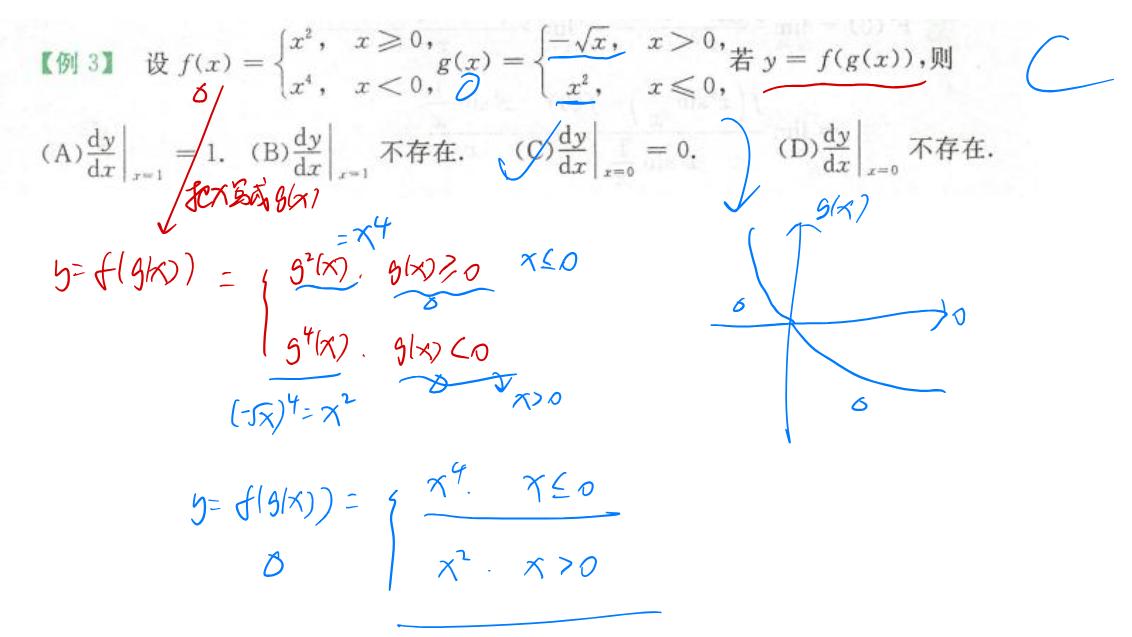 【例 3】 设 f(x) = { x², x ⩾ 0, x⁴, x < 0, g(x) = { −√x, x > 0, x², x ⩽ 0, 若 y = f(g(x)),则 C
(A) dy/dx |ₓ₌₁ = 1. (B) dy/dx |ₓ₌₁ 不存在. (C) dy/dx |ₓ₌₀ = 0. (D) dy/dx |ₓ₌₀ 不存在.
把x写成g(x)
g(x)
= x⁴
y = f(g(x)) = { g²(x). g(x) ≥ 0 x ≤ 0
g⁴(x). g(x) < 0
(-√x)⁴ = x² x>0
y = f(g(x)) = { x⁴. x ≤ 0
x². x > 0